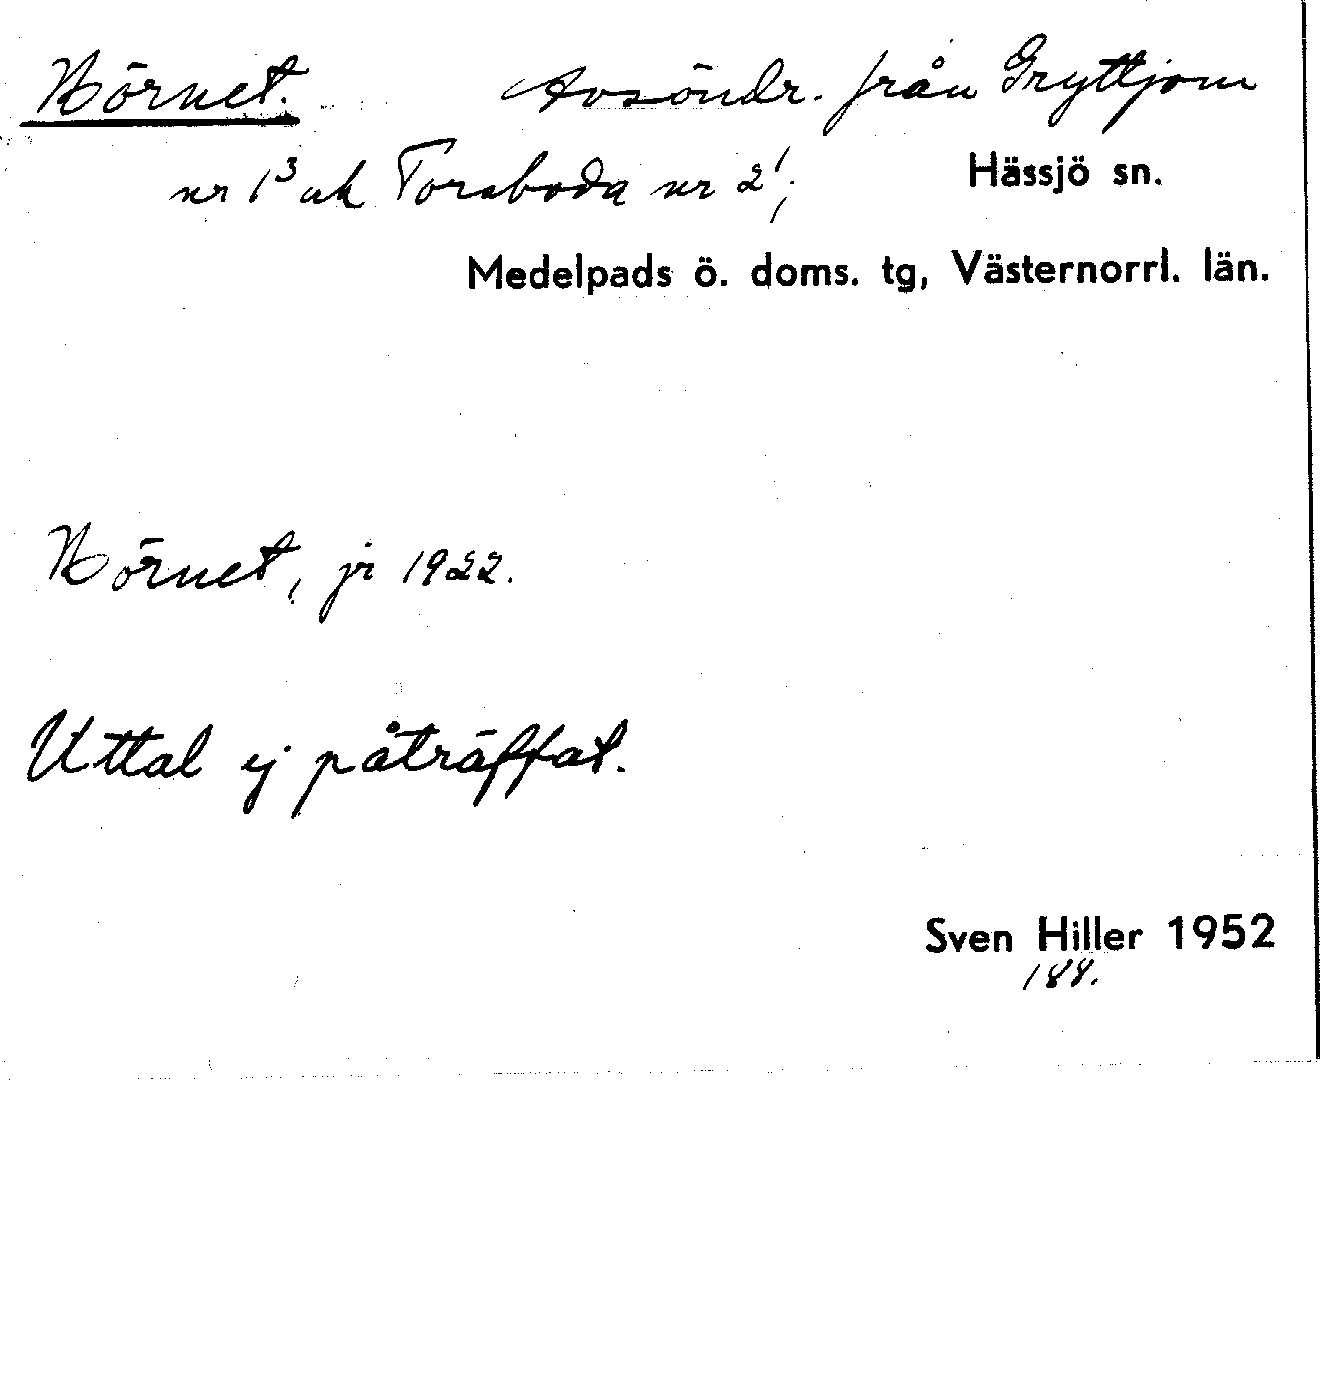 Hörnet. Avsöndr. från Gryttjom
nr 1³ ok Torsboda nr 2¹;
Hässjö sn.
Medelpads ö. doms. tg, Västernorrl. län.
Hörnet, jr 1922.
Uttal ej påträffat.
Sven Hiller 1952
188.